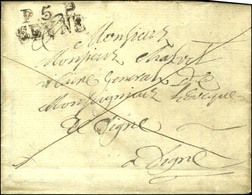 P. 5. P.
SEYNE
a Monsieur
Monsieur Chaix
vicaire general de
Monseigneur l'eveque
de Digne
a Digne